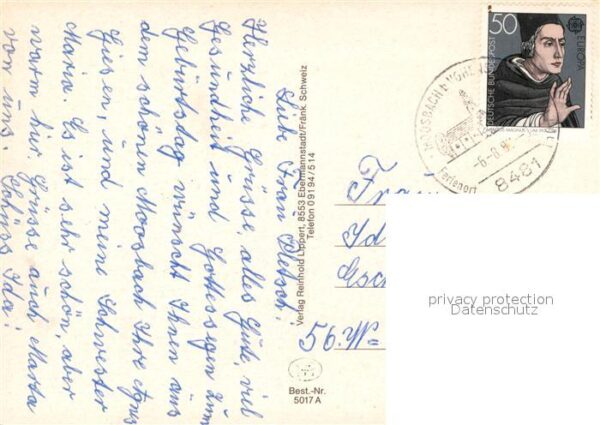 Liebe Frau Pletsch!
Herzliche Grüsse alles Gute, viel
Gesundheit und Gottessegen zum
Geburtstag wünscht Ihnen aus
dem schönen Moosbach Ihre
Giesen, und meine Schwester
Maria. Es ist sehr schön, aber
warm hier Grüsse auch Marta
von uns. Tschüss Ida!
Verlag Reinhold Lippert, 8553 Ebermannstadt/Fränk. Schweiz
Telefon 09194/514
50
DEUTSCHE BUNDESPOST
EUROPA
MOOSBACH b. VOHENSTR
-6.-8.
8481
Ferienort
Frau
Id
Gsch
56. W=
privacy protection
Datenschutz
Best.-Nr.
5017 A